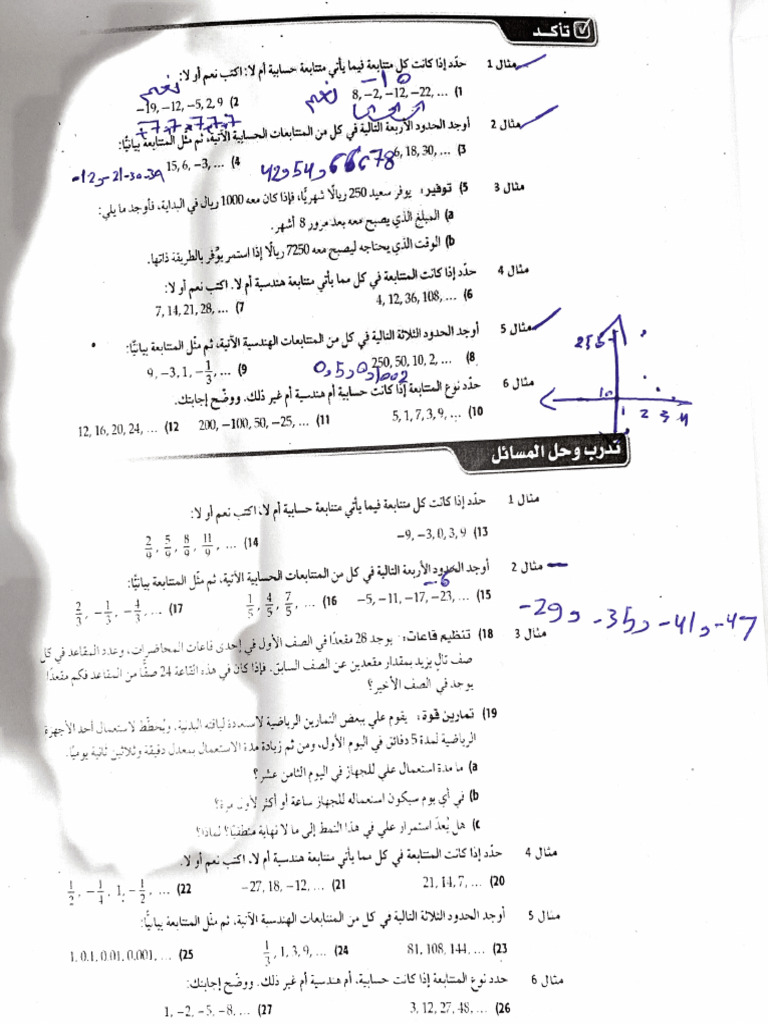 تأكد
مثال 1 حدّد إذا كانت كل متتابعة فيما يأتي متتابعة حسابية أم لا: اكتب نعم أو لا:
نعم نعم -10
1) 8, −2, −12, −22, … 2) −19, −12, −5, 2, 9
+7, 7, +7, 7, 7
مثال 2 أوجد الحدود الأربعة التالية في كل من المتتابعات الحسابية الآتية، ثم مثّل المتتابعة بيانيًّا:
3) 6, 18, 30, … 42و54و66و78 4) 15, 6, −3, … -12و-21-30-39
مثال 3 5) توفير: يوفر سعيد 250 ريالًا شهريًّا، فإذا كان معه 1000 ريال في البداية، فأوجد ما يلي:
a) المبلغ الذي يصبح معه بعد مرور 8 أشهر.
b) الوقت الذي يحتاجه ليصبح معه 7250 ريالًا إذا استمر يوفر بالطريقة ذاتها.
مثال 4 حدّد إذا كانت المتتابعة في كل مما يأتي متتابعة هندسية أم لا. اكتب نعم أو لا:
6) 4, 12, 36, 108, … 7) 7, 14, 21, 28, …
مثال 5 أوجد الحدود الثلاثة التالية في كل من المتتابعات الهندسية الآتية، ثم مثّل المتتابعة بيانيًّا:
8) 250, 50, 10, 2, … 9) 9, −3, 1, −1/3, …
مثال 6 حدّد نوع المتتابعة إذا كانت حسابية أم هندسية أم غير ذلك. ووضّح إجابتك.
10) 5, 1, 7, 3, 9, … 11) 200, −100, 50, −25, … 12) 12, 16, 20, 24, …
10 1 2 3 4
تدرب وحل المسائل
مثال 1 حدّد إذا كانت كل متتابعة فيما يأتي متتابعة حسابية أم لا، اكتب نعم أو لا:
13) −9, −3, 0, 3, 9 14) 2/9, 5/9, 8/9, 11/9, …
مثال 2 أوجد الحدود الأربعة التالية في كل من المتتابعات الحسابية الآتية، ثم مثّل المتتابعة بيانيًّا:
-6
15) −5, −11, −17, −23, … 16) 1/5, 4/5, 7/5, … 17) 2/3, −1/3, −4/3, …
-29و -35و -41و -47
مثال 3 18) تنظيم قاعات: يوجد 28 مقعدًا في الصف الأول في إحدى قاعات المحاضرات، وعدد المقاعد في كل
صف تالٍ يزيد بمقدار مقعدين عن الصف السابق. فإذا كان في هذه القاعة 24 صفًّا من المقاعد فكم مقعدًا
يوجد في الصف الأخير؟
19) تمارين قوة: يقوم علي ببعض التمارين الرياضية لاستعادة لياقته البدنية. ويُخطّط لاستعمال أحد الأجهزة
الرياضية لمدة 5 دقائق في اليوم الأول، ومن ثم زيادة مدة الاستعمال بمعدل دقيقة وثلاثين ثانية يوميًا.
a) ما مدة استعمال علي للجهاز في اليوم الثامن عشر؟
b) في أي يوم سيكون استعماله للجهاز ساعة أو أكثر لأول مرة؟
c) هل يُعدّ استمرار علي في هذا النمط إلى ما لا نهاية منطقيًّا؟ لماذا؟
مثال 4 حدّد إذا كانت المتتابعة في كل مما يأتي متتابعة هندسية أم لا. اكتب نعم أو لا.
20) 21, 14, 7, … 21) −27, 18, −12, … 22) 1/2, −1/4, 1, −1/2, …
مثال 5 أوجد الحدود الثلاثة التالية في كل من المتتابعات الهندسية الآتية، ثم مثّل المتتابعة بيانيًّا:
23) 81, 108, 144, … 24) 1/3, 1, 3, 9, … 25) 1, 0.1, 0.01, 0.001, …
مثال 6 حدد نوع المتتابعة إذا كانت حسابية، أم هندسية أم غير ذلك. ووضّح إجابتك:
26) 3, 12, 27, 48, … 27) 1, −2, −5, −8, …